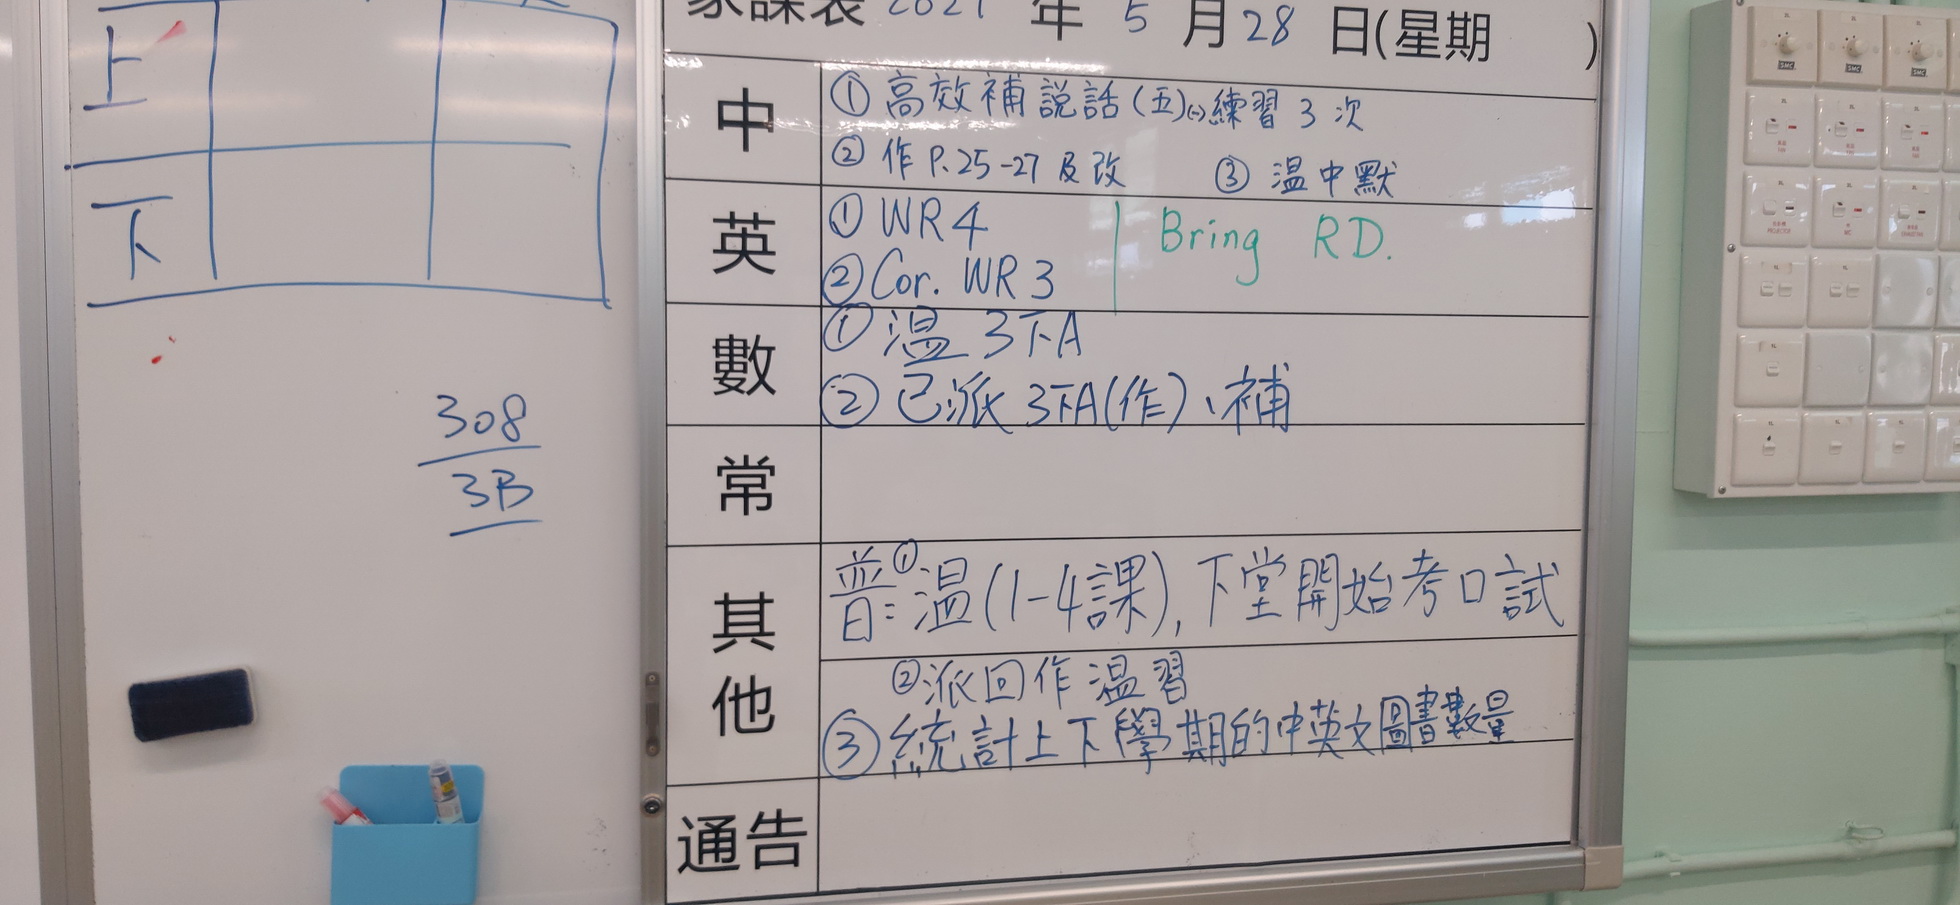 上
下
308
3B
家課表 2021 年 5 月 28 日(星期 )
中
① 高效補說話(五)㈡練習 3 次
② 作 P.25-27 及改 ③ 温中默
英
① WR 4
② Cor. WR 3
Bring RD.
數
① 温 3下A
② 已派 3下A(作)、補
常
其他
普:①温(1-4課), 下堂開始考口試
②派回作温習
③統計上下學期的中英文圖書數量
通告